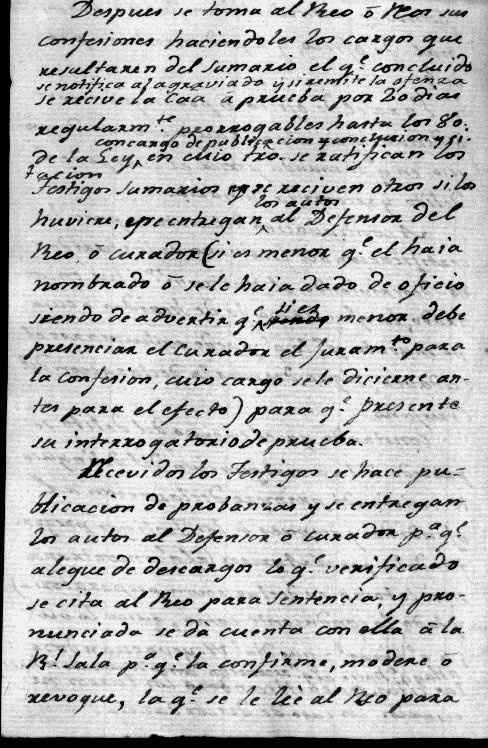 Despues se toma al Reo ō Reos sus
confesiones haciendoles los cargos que
resultaren del sumario el q.ᵉ concluido
se notifica al agraviado y si remite la ofenza
se recive la Caã a prueba por 20 dias
regularm.ᵗᵉ prorrogables hasta los 80.
con cargo de publicacion y conclucion y si-
de la Ley, en cuio trõ. se ratifican los
tacion
Testigos sumarios y se reciven otros si los
huviere, y se entregan al Defensor del
los autos
Reo, ō curador (si es menor q.ᵉ el haia
nombrado ō se le haia dado de oficio
siendo de advertir q.ᵉ si es menor debe
presenciar el curador el juram.ᵗᵒ para
la confesion, cuio cargo se le dicierne an-
tes para el efecto) para q.ᵉ presente
su interrogatorio de prueba.
Recevidos los Testigos se hace pu-
blicacion de probanzas y se entregan
los autos al Defensor ō curador p.ᵃ q.ᵉ
alegue de descargos lo q.ᵉ verificado
se cita al Reo para sentencia, y pro-
nunciada se dà cuenta con ella ā la
R.ˡ Sala p.ᵃ q.ᵉ la confirme, modere ō
revoque, la q.ᵉ se le lèe al Reo para